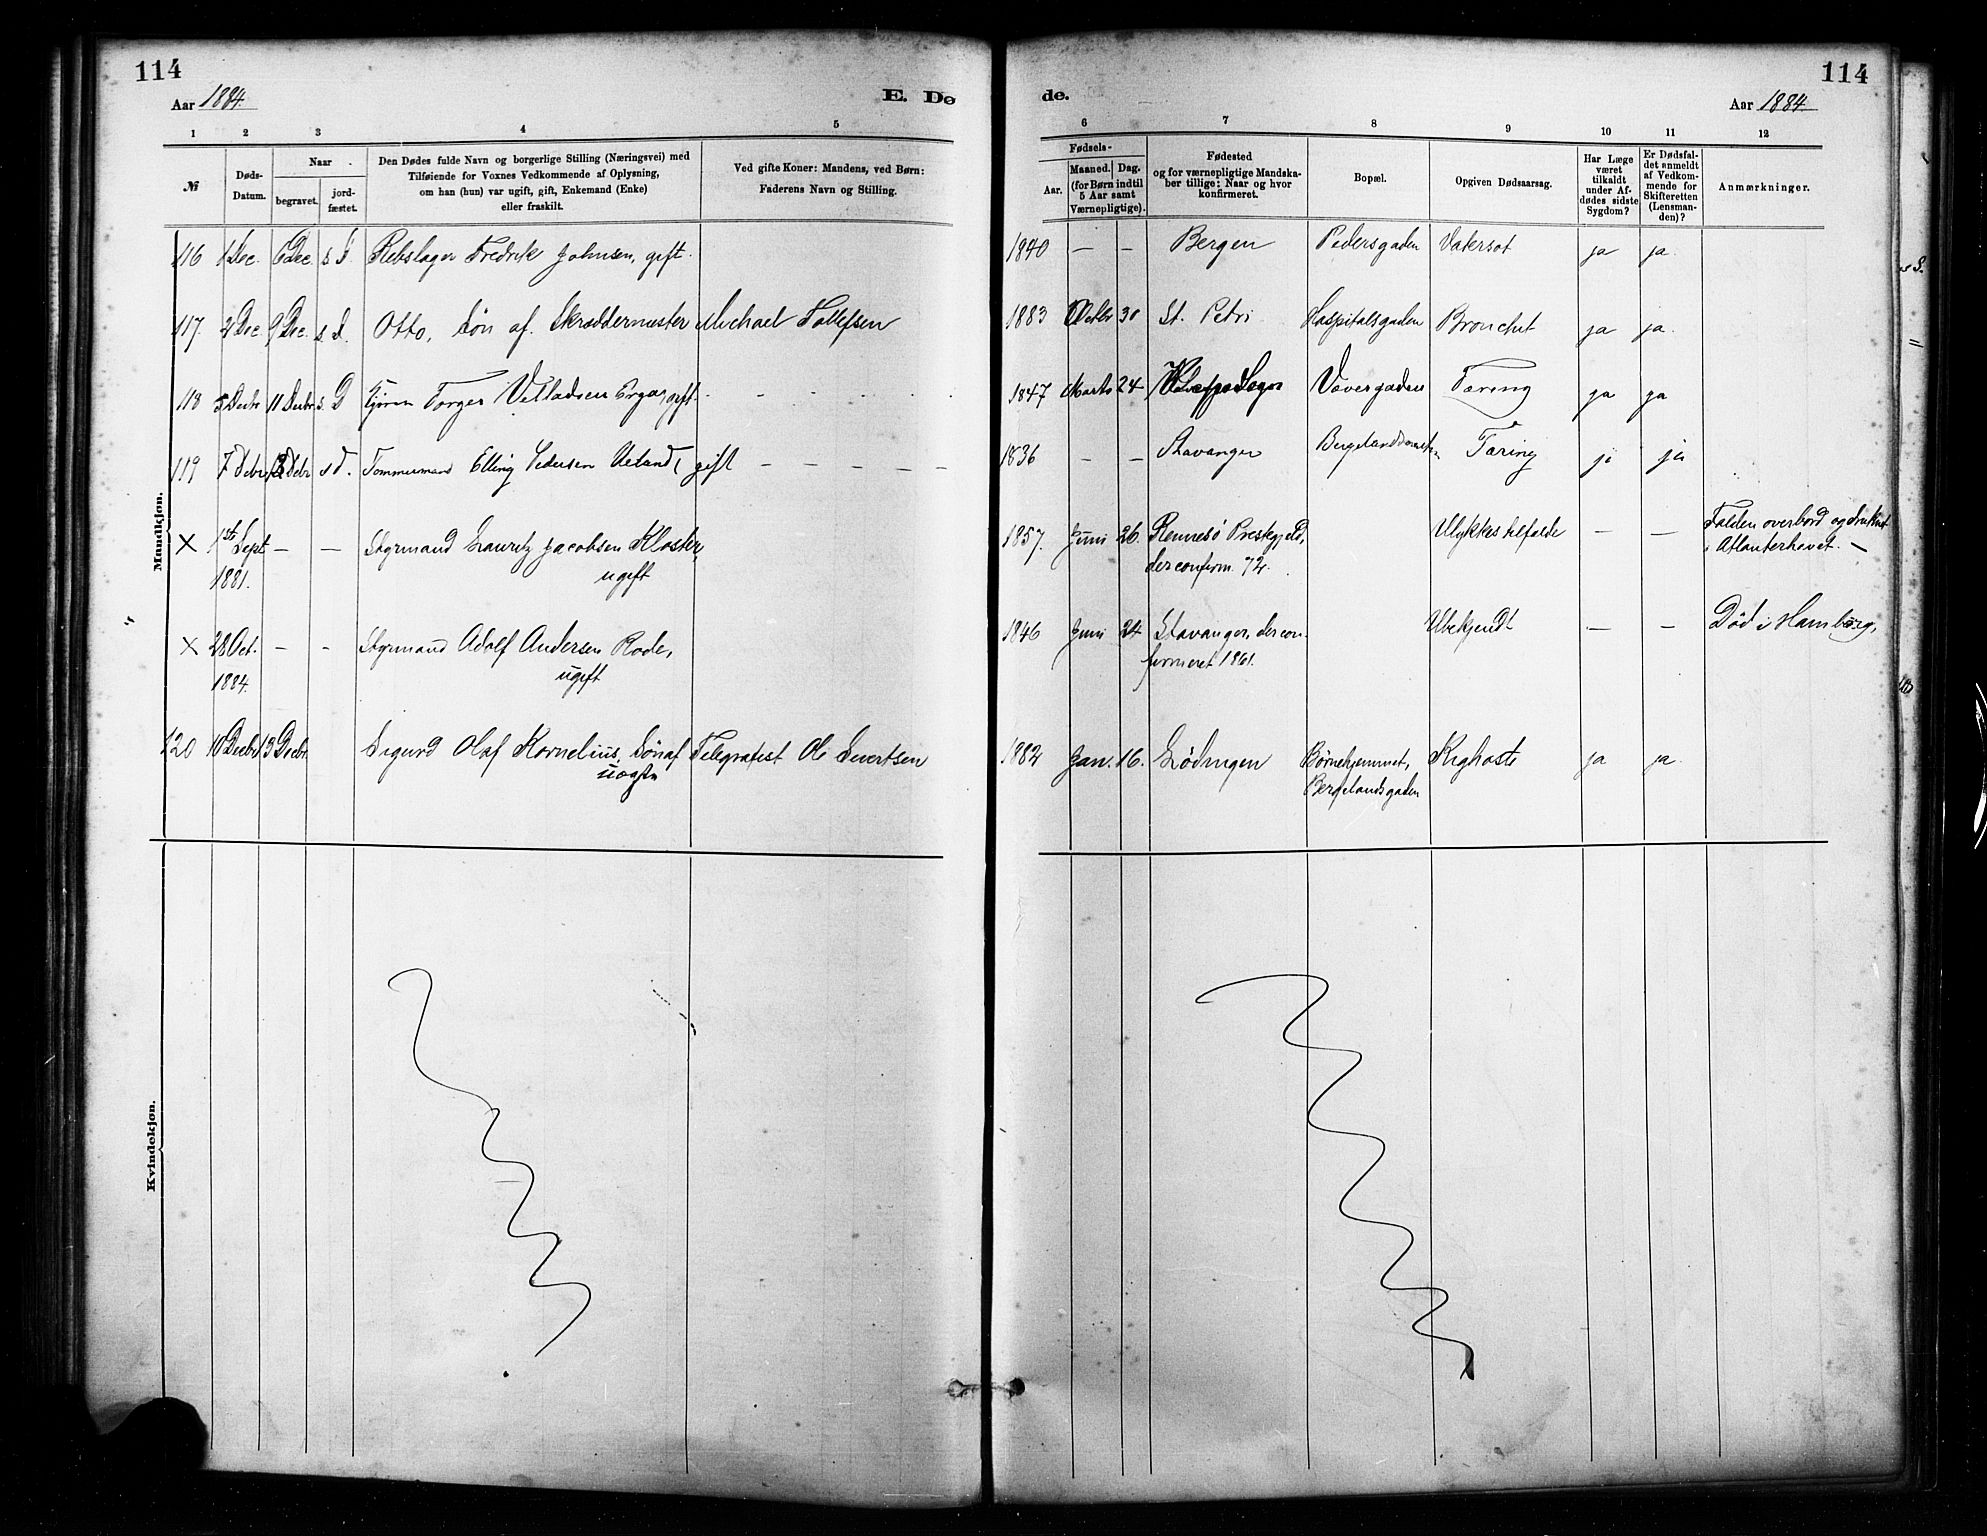 114
114
Aar 1884.
E. Dø
de.
Aar 1884
1 2 3 4 5
6 7 8 9 10 11 12
№
Døds-
Datum.
Naar
begravet.
jord-
fæstet.
Den Dødes fulde Navn og borgerlige Stilling (Næringsvei) med
Tilføiende for Voxnes Vedkommende af Oplysning,
om han (hun) var ugift, gift, Enkemand (Enke)
eller fraskilt.
Ved gifte Koner: Mandens, ved Børn:
Faderens Navn og Stilling.
Fødsels-
Aar.
Maaned. Dag.
(for Børn indtil
5 Aar samt
Værnepligtige).
Fødested
og for værnepligtige Mandska-
ber tillige: Naar og hvor
konfirmeret.
Bopæl.
Opgiven Dødsaarsag.
Har Læge
været
tilkaldt
under Af-
dødes sidste
Sygdom?
Er Dødsfal-
det anmeldt
af Vedkom-
mende for
Skifteretten
(Lensman-
den)?
Anmærkninger.
Mandkjøn.
116 1 Dec. 6 Dec. s. D. Rebslager Fredrik Johnsen, gift. 1840 — — Bergen Pedersgaden Vatersot ja ja.
117. 2 Dec 9 Dec. s. d. Otto, Søn af Skræddermester Michael Tollefsen 1883 Octbr 30 St. Petri Hospitalsgaden Bronchit ja ja.
118 5 Decbr 11 Decbr s. D Torger Velladsen Erga, gift. 1847 Marts 24 Vævergaden Tæring ja ja
119 7 Debr 13 Debr s d. Tømmermand Elling Pedersen Ueland, gift — — — — — 1836 — — Stavanger Tæring ja ja
X 1st Sept — — Styrmand Lauritz Jacobsen Kloster, 1857. Juni 26. Rennesø Prestgjeld, Ulykkestilfælde — — Falden overbord og druknet
1881. ugift der confirm. 72. i Atlanterhavet. —
X 28 Oct. — - Styrmand Adolf Andersen Rode, 1846 Juni 24 Stavanger, der con- Ubekjendt — — Død i Hamborg,
1884. ugift firmeret 1861.
120 10 Decbr 13 Decbr. Sigurd Olaf Kornelius, Søn af Telegrafist Ole Sivertsen 1882 Jan. 16. Lødingen Børnehjemmet, Kighoste ja ja.
uægte Bergelandsgaden
Kvindekjøn.